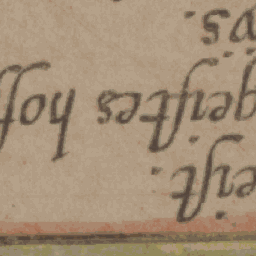 eiſt.
geiſtes hoff